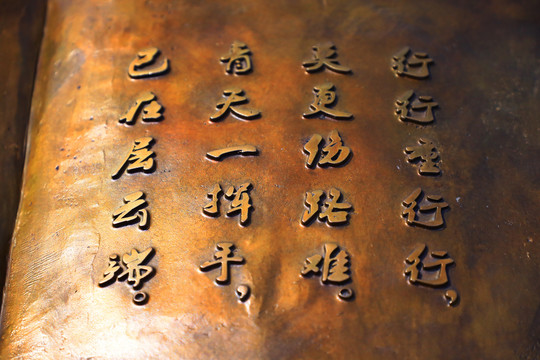 行行重行行，
莫更伤路难。
青天一挥手，
已在层云端。